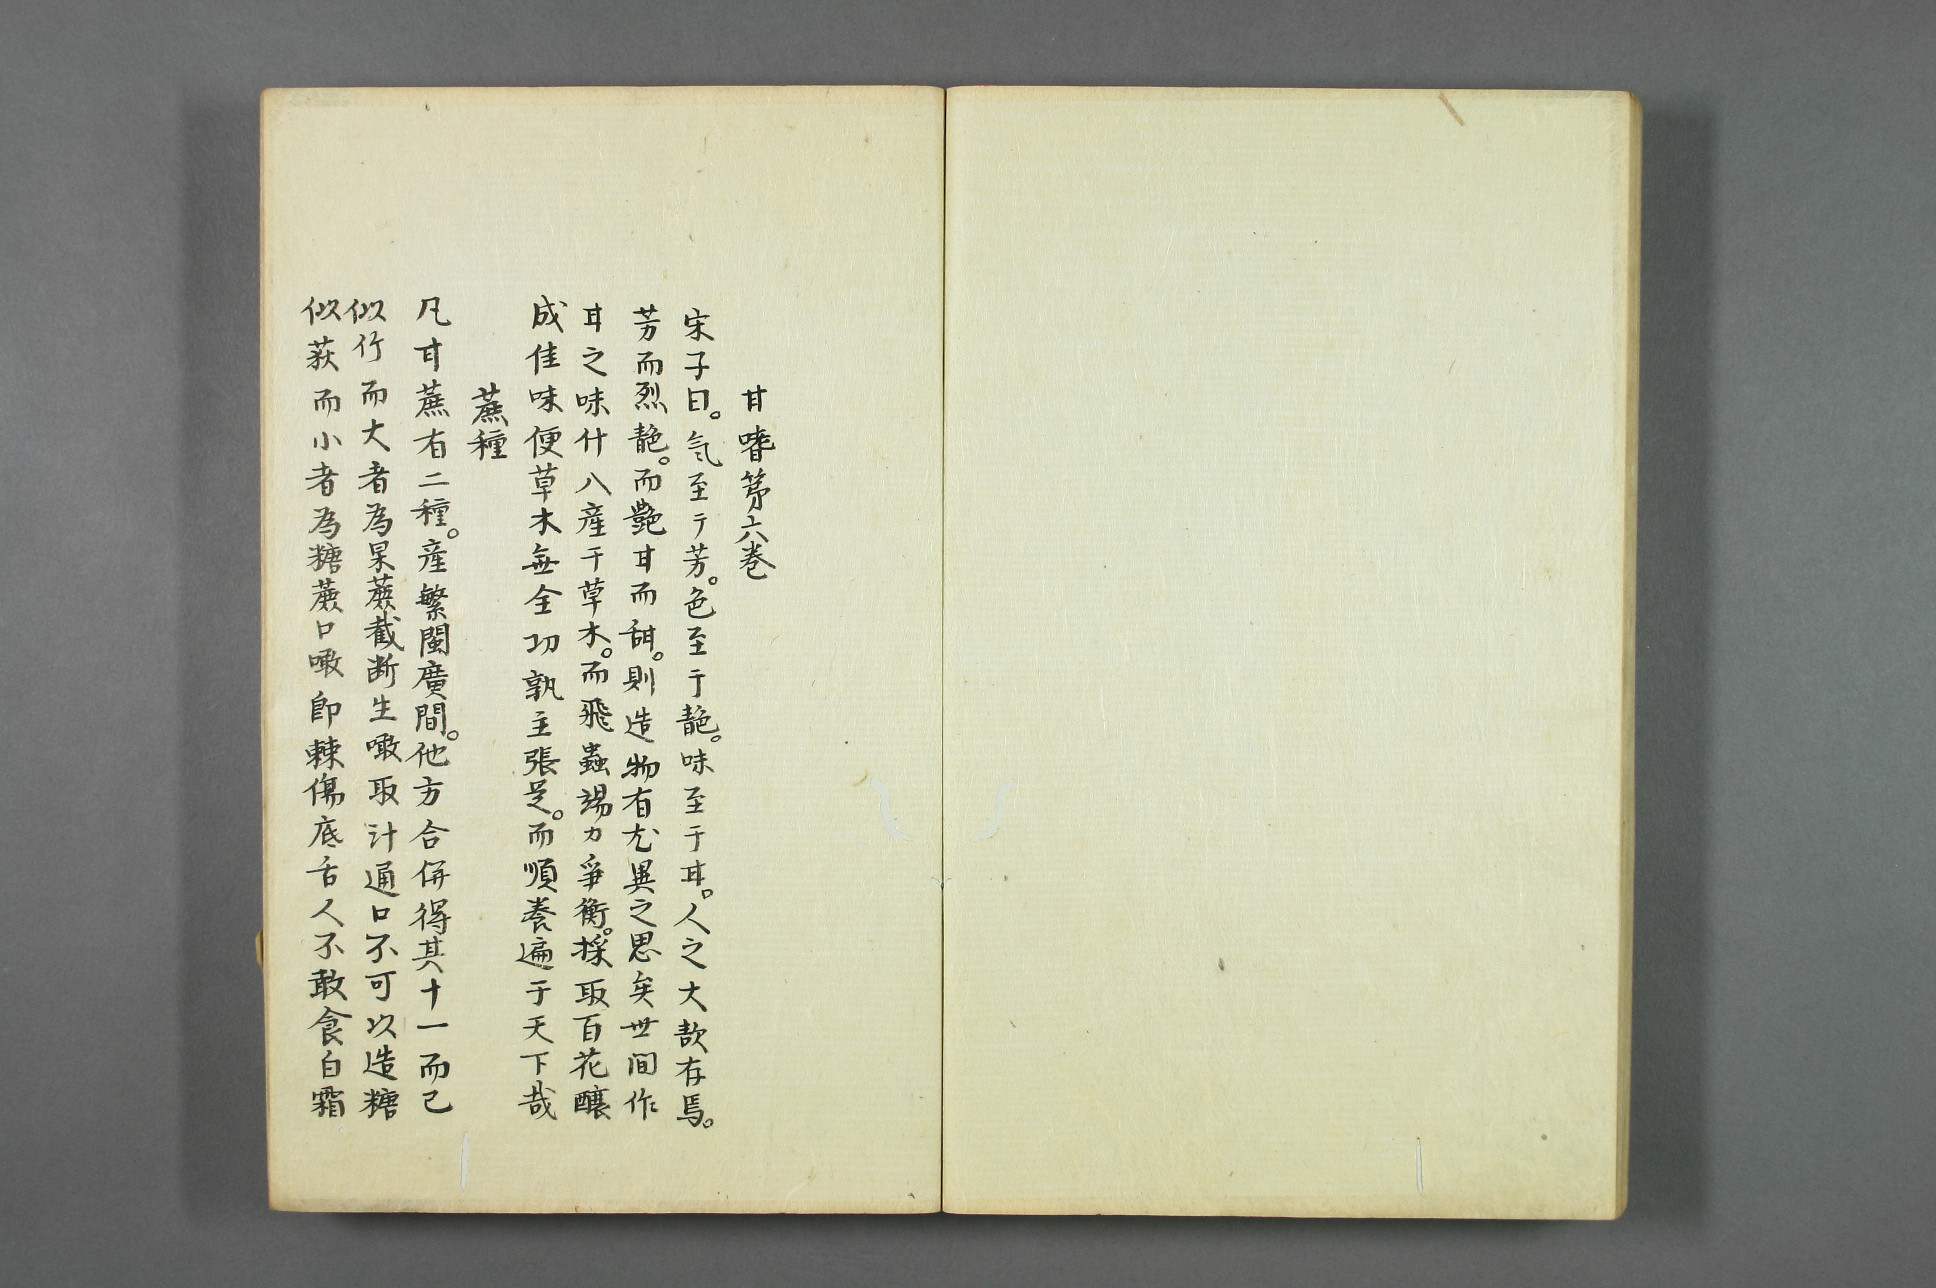 甘嗜第六巻
宋子曰。気至于芳。色至于靘。味至于甘。人之大欲存焉。
芳而烈靘。而艶甘而甜。則造物有尤異之思矣世間作
甘之味什八産于草木。而飛蟲竭力争衡。採取百花釀
成佳味便草木無全功孰主張是。而順養遍于天下哉
蔗種
凡甘蔗有二種。産繁閩廣間。他方合併得其十一而已
似竹而大者為果蔗截断生噉取汁通口不可以造糖
似荻而小者為糖蔗口噉即棘傷底舌人不敢食白霜